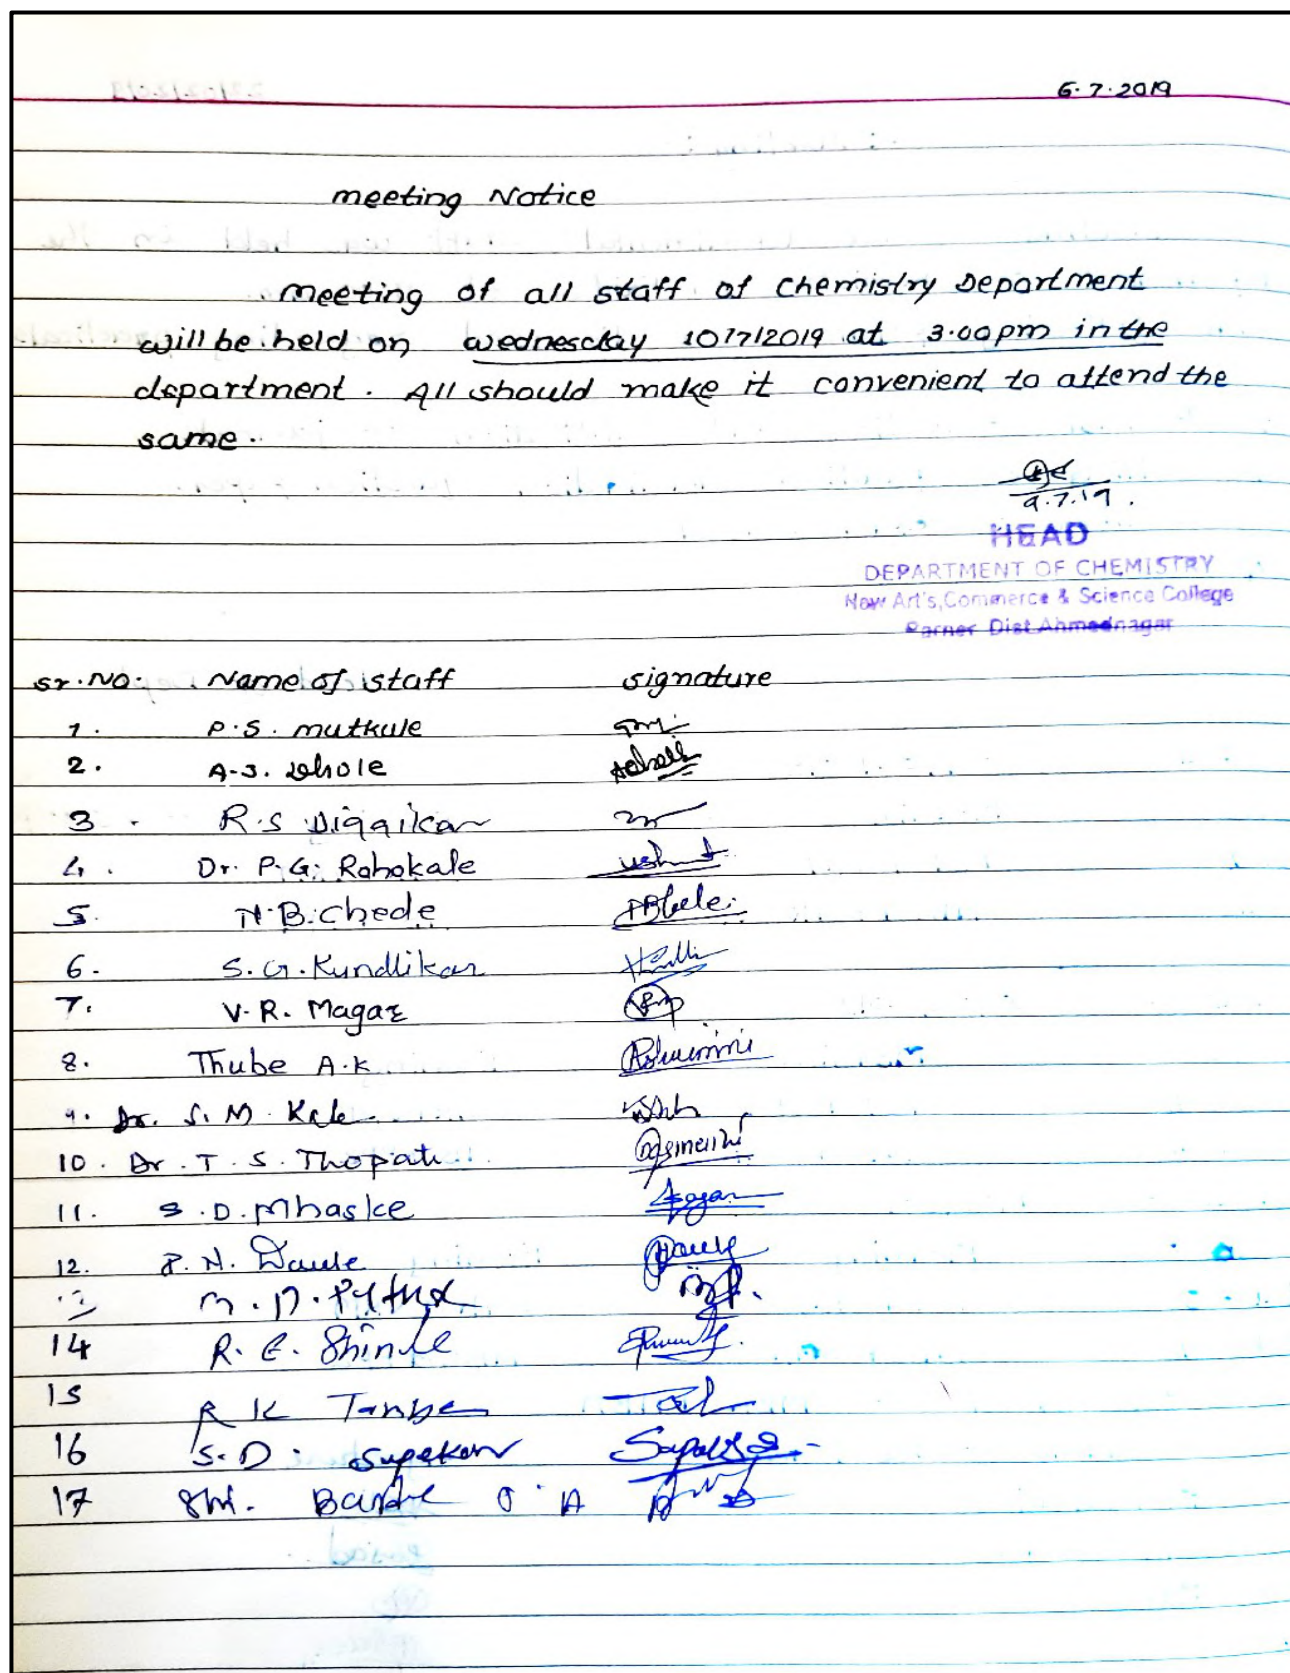 6.7.2019
meeting Notice
meeting of all staff of chemistry Department
will be held on wednesday 10/7/2019 at 3.00pm in the
department. All should make it convenient to attend the
same.
9.7.19.
HEAD
DEPARTMENT OF CHEMISTRY
New Art's, Commerce & Science College
Parner Dist Ahmednagar
sr.No. Name of staff signature
1. P.S. mutkule
2. A.J. Dhole
3. R.S Diggikar
4. Dr. P.G. Rohokale
5. N.B. Chede
6. S.G. Kundlikar
7. V.R. Magar
8. Thube A.K Ashwini
9. Dr. S.M. Kale
10. Dr. T.S. Thopate
11. S.D. Mhaske
12. P.N. Daule
M.D.
14 R.E. Shinde
15 R K
16 S.D. Supekar
17 A